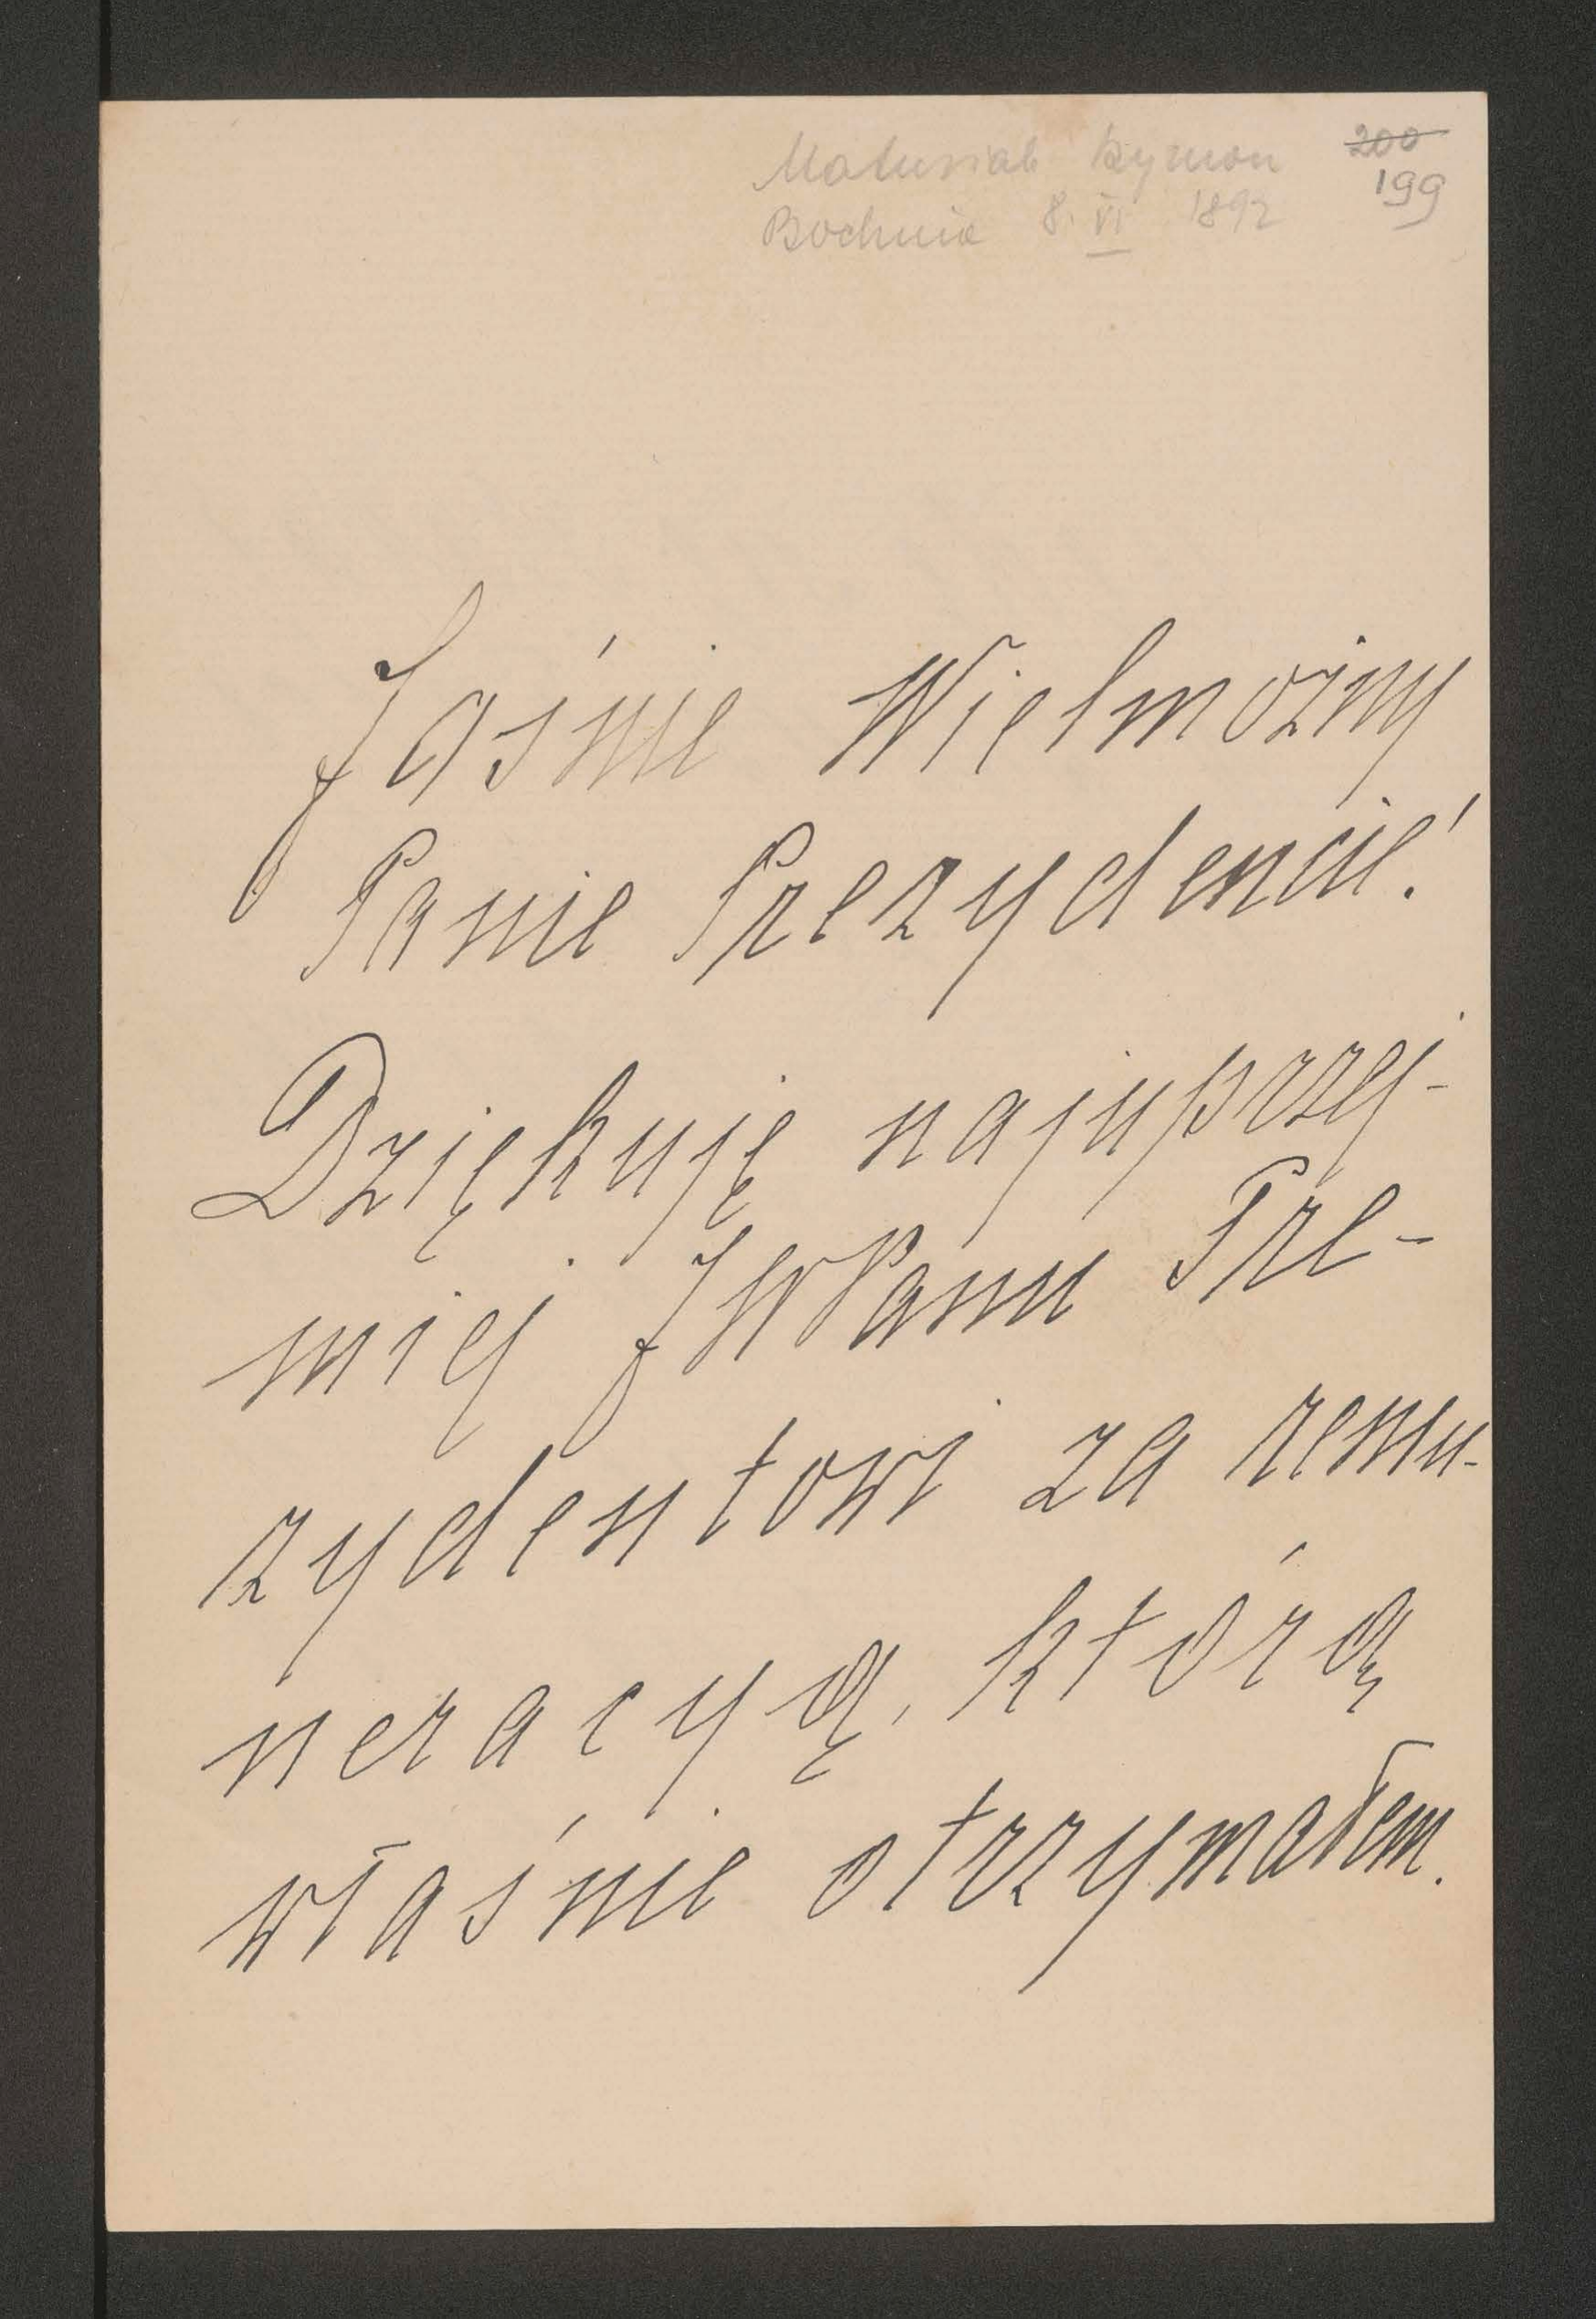 Matusiak Szymon
Bochnia 8. VI 1892
200
199
Jaśnie Wielmożny
Panie Prezydencie!
Dziękuję najuprzej-
miej JWPanu Pre-
zydentowi za remu-
neracyą, którą
właśnie otrzymałem.